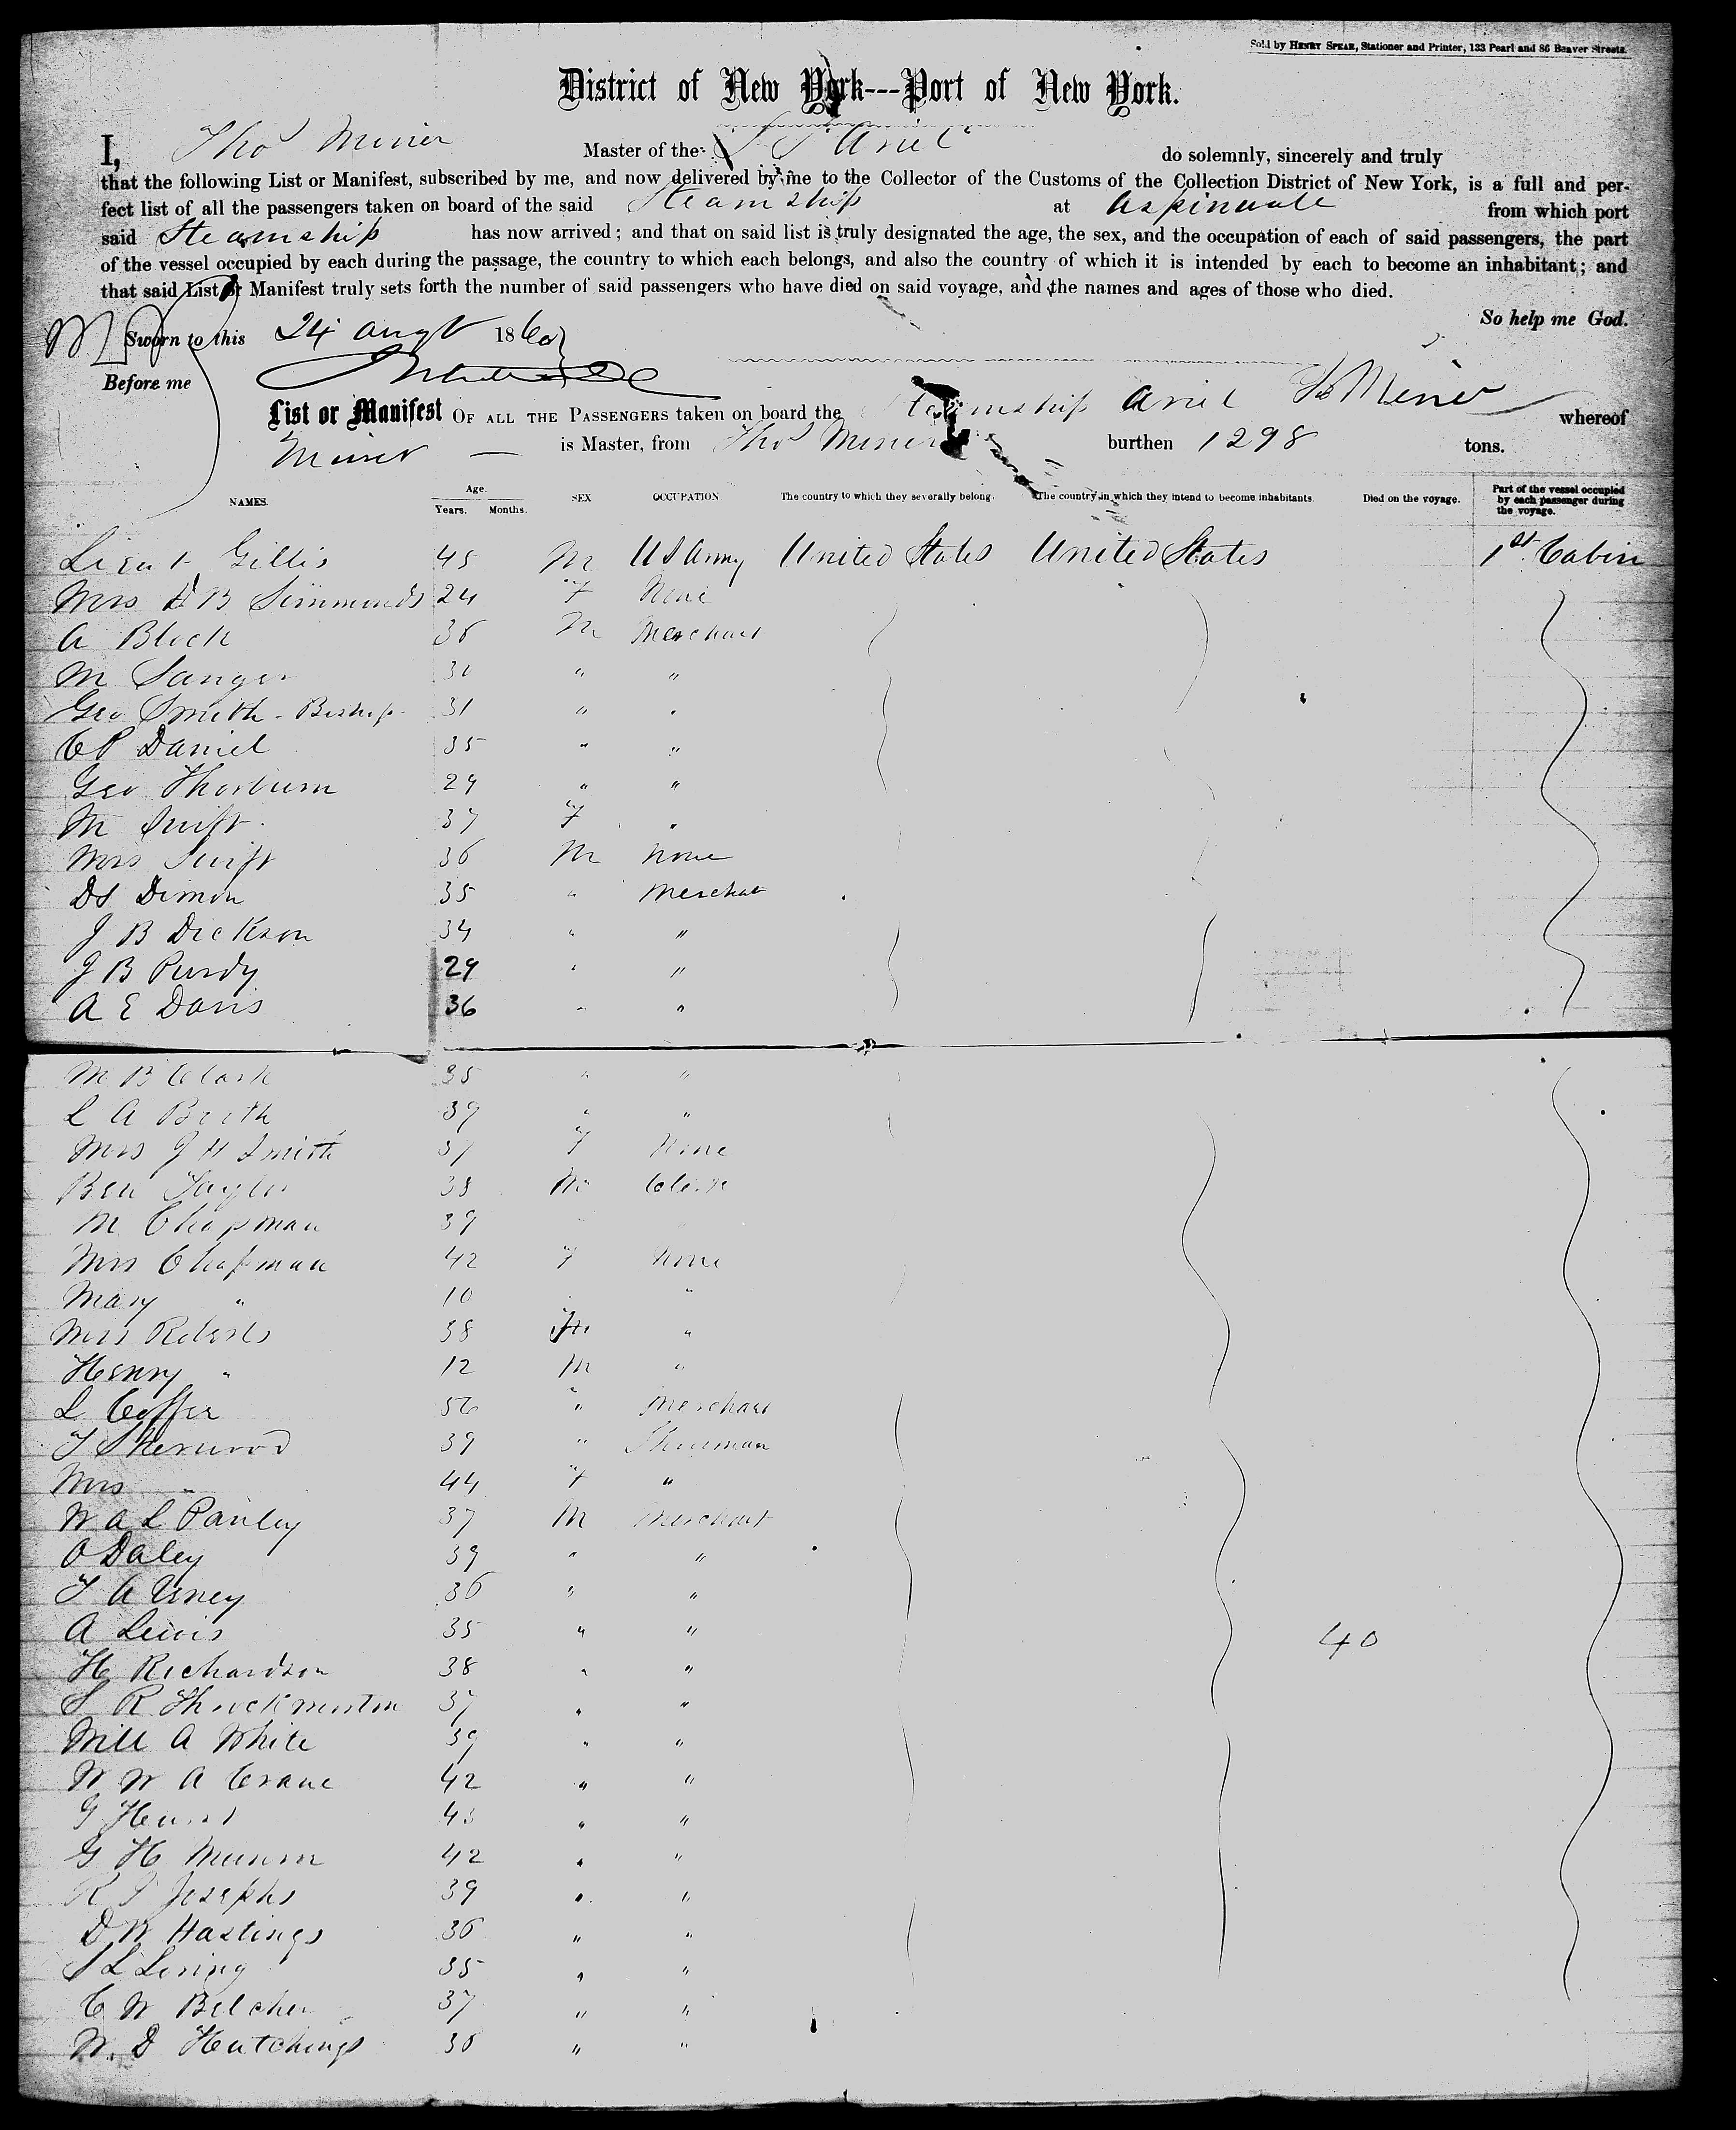 Sold by HENRY SPEAR, Stationer and Printer, 133 Pearl and 86 Beaver Streets.
District of New York---Port of New York.
I, Thos Miner Master of the S S Ariel do solemnly, sincerely and truly
that the following List or Manifest, subscribed by me, and now delivered by me to the Collector of the Customs of the Collection District of New York, is a full and per-
fect list of all the passengers taken on board of the said Steamship at Aspinwall from which port
said Steamship has now arrived; and that on said list is truly designated the age, the sex, and the occupation of each of said passengers, the part
of the vessel occupied by each during the passage, the country to which each belongs, and also the country of which it is intended by each to become an inhabitant; and
that said List or Manifest truly sets forth the number of said passengers who have died on said voyage, and the names and ages of those who died.
So help me God.
Sworn to this 24 Augt 1860
Before me
Ths Miner
List or Manifest OF ALL THE PASSENGERS taken on board the Steamship Ariel whereof
Miner is Master, from Thos Miner burthen 1298 tons.
NAMES. Age. Years. Months. SEX OCCUPATION The country to which they severally belong. The country in which they intend to become inhabitants. Died on the voyage. Part of the vessel occupied by each passenger during the voyage.
Lieut Gillis 45 M US Army United States United States 1st Cabin
Mrs D B Simmonds 24 F None
A Block 36 M Merchant
M Sanger 30 " "
Geo Smith - Bishop 31 " "
C P Daniel 35 " "
Geo Thorburn 29 " "
M Swift 37 F "
Mrs Swift 36 M None
DS Dimon 35 " Merchat
J B Dickson 34 " "
J B Purdy 29 " "
A E Davis 36 " "
M B Clark 35 " "
L A Booth 39 " "
Mrs J H Smith 37 F None
Ben Taylor 38 M Clerk
M Chapman 39
Mrs Chapman 42 F None
Mary " 10 "
Mrs Roberts 38 "
Henry " 12 M "
L Coffer 56 " Merchant
T Sherwood 39 "
Mrs " 44 F "
W A L Pauley 37 M Merchant
O Daley 39 " "
T A Urney 36 " "
A Lewis 35 " " 40
H Richardson 38 " "
S R Throckmorton 37 " "
Will A White 39 " "
W W A Crane 42 " "
G 43 " "
G H Munson 42 " "
R Josephs 39 " "
D W Hastings 36 " "
S L Loring 35 " "
C W Belcher 37 " "
W. D Hutchings 36 " "